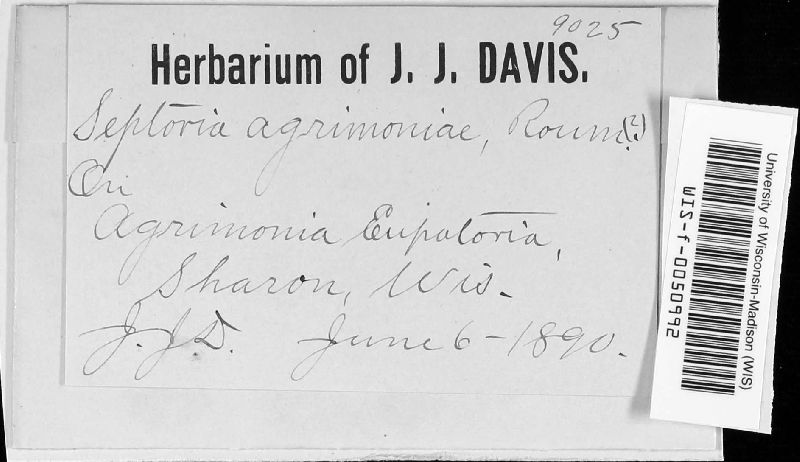 9025
Herbarium of J. J. DAVIS.
Septoria agrimoniae, Roum. (?)
On
Agrimonia Eupatoria,
Sharon, Wis.
J. J. D. June 6-1890.
University of Wisconsin-Madison (WIS)
WIS-f-0050992